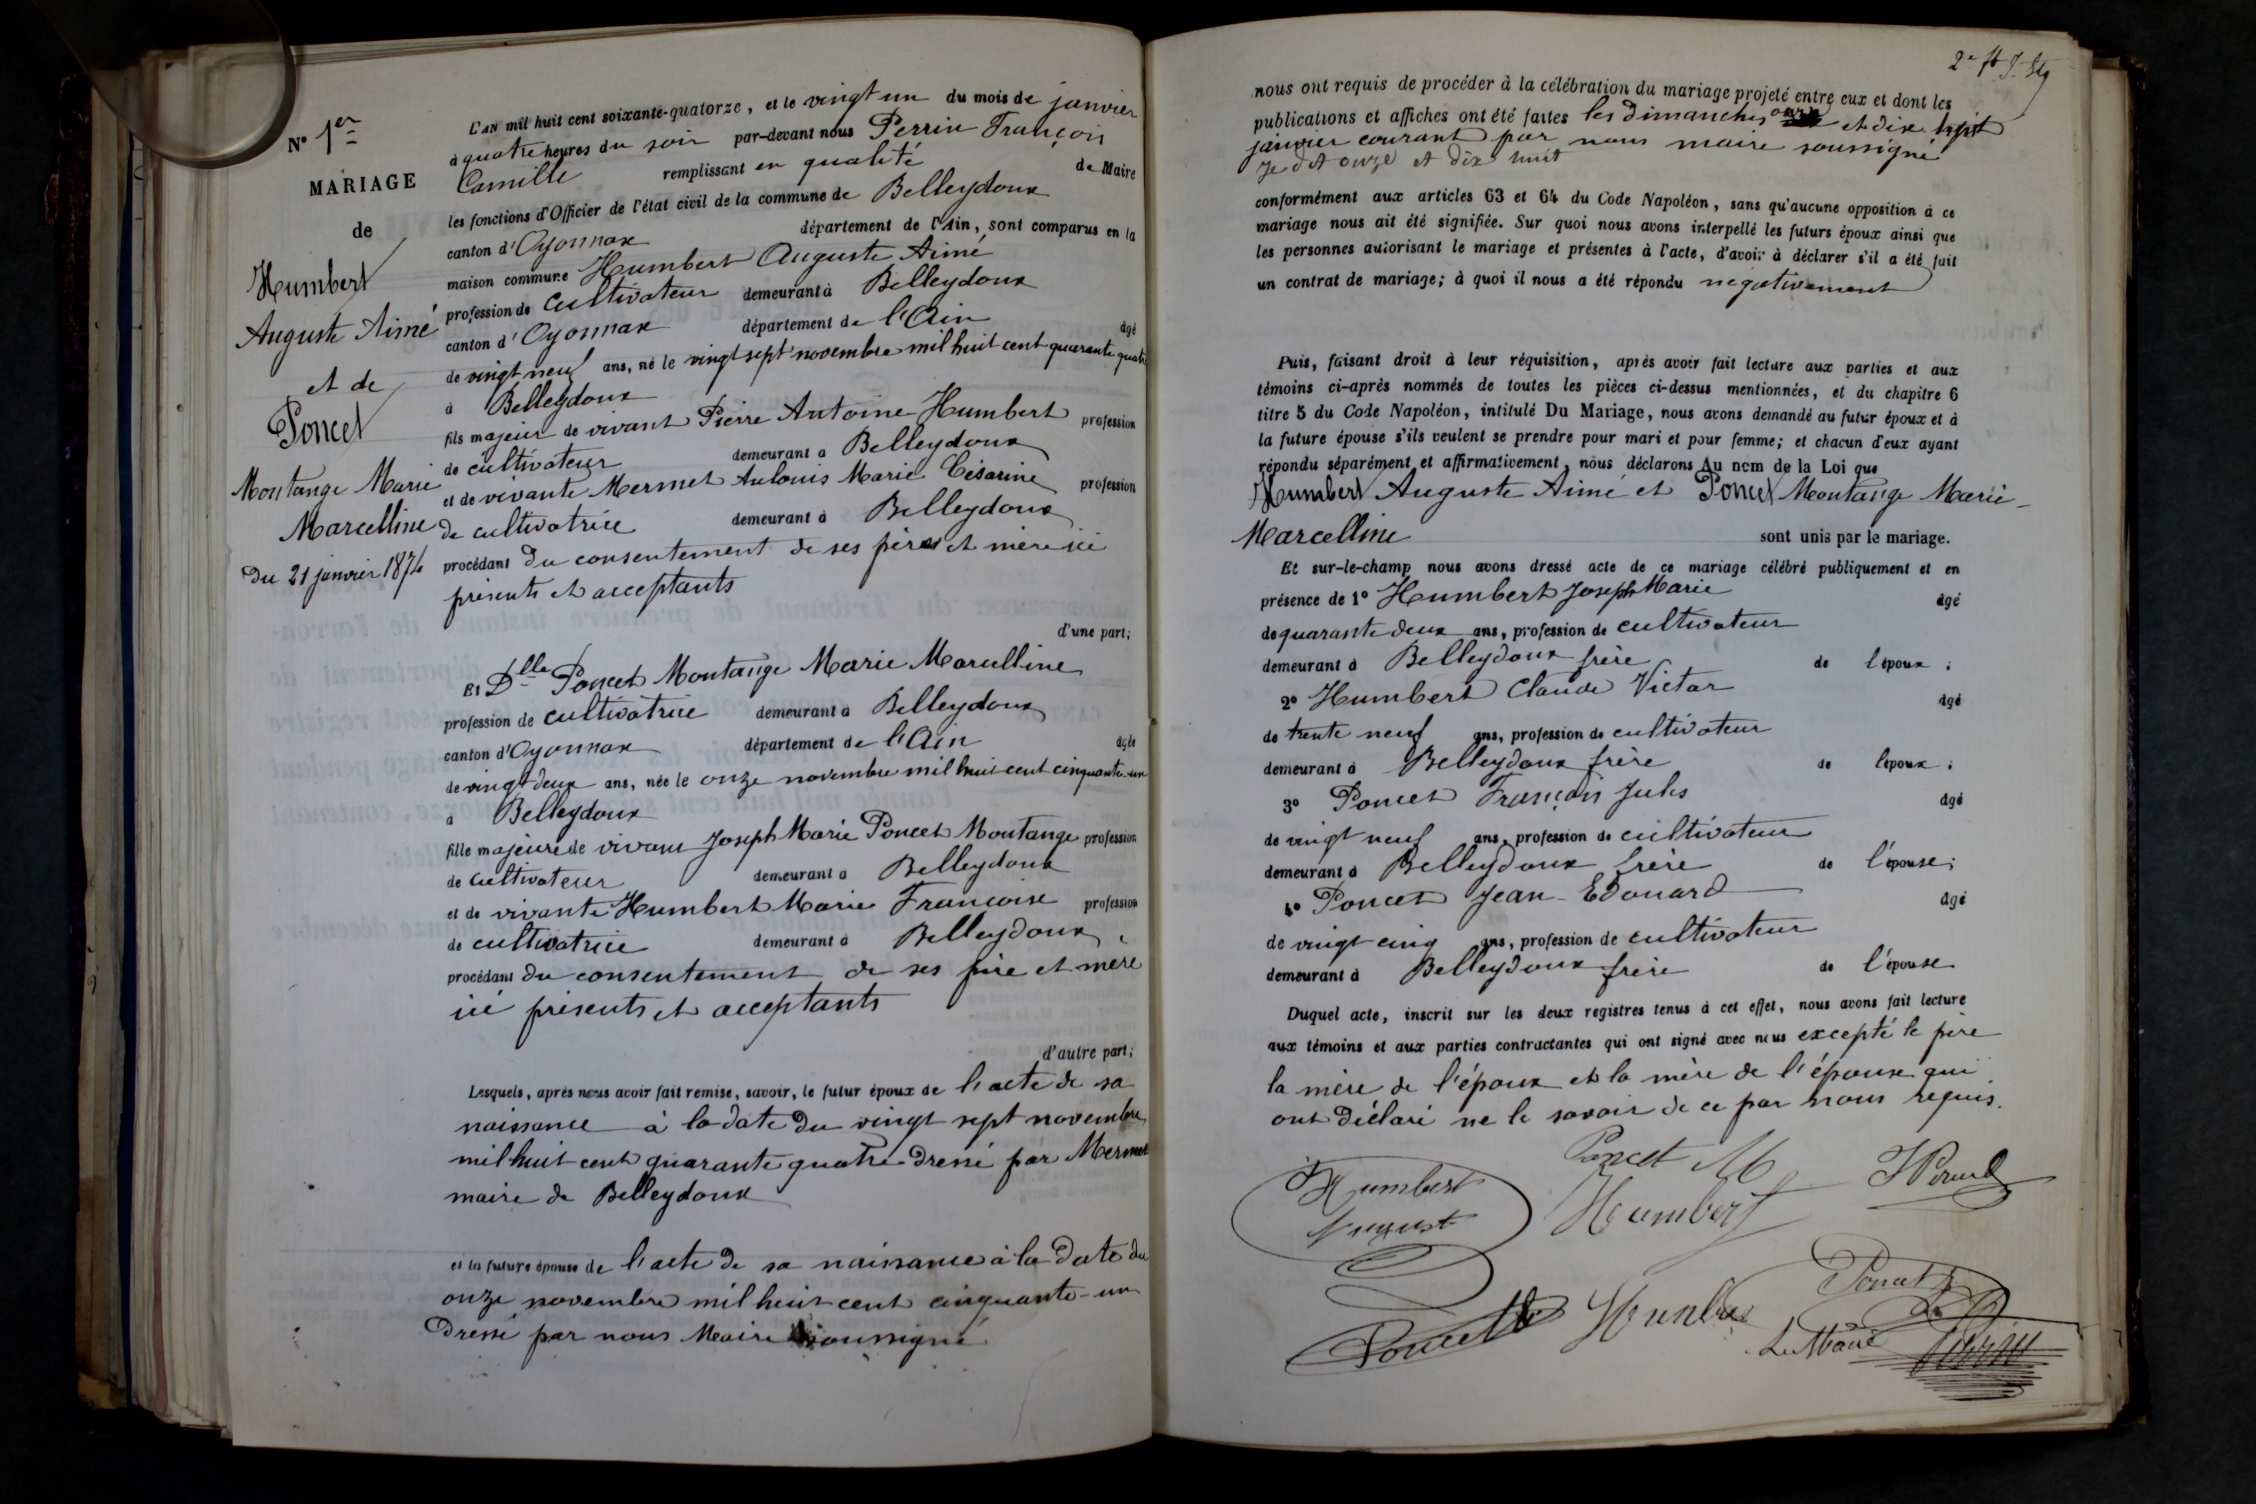 N° 1er
MARIAGE
de
Humbert
Auguste Aimé
et de
Poncet
Montange Marie
Marcelline
Du 21 janvier 1874
L'AN mil huit cent soixante-quatorze, et le vingt un du mois de janvier
à quatre heures du soir par-devant nous Perrin François
Camille remplissant en qualité de Maire
les fonctions d'Officier de l'état civil de la commune de Belleydoux
canton d'Oyonnax département de l'Ain, sont comparus en la
maison commune Humbert Auguste Aimé
profession de cultivateur demeurant à Belleydoux
canton d'Oyonnax département de l'Ain âgé
de vingt neuf ans, né le vingt sept novembre mil huit cent quarante quatre
à Belleydoux
fils majeur de vivant Pierre Antoine Humbert profession
de cultivateur demeurant à Belleydoux
et de vivante Mermet Aulouis Marie Césarine profession
de cultivatrice demeurant à Belleydoux
procédant du consentement de ses père et mère ici
présents et acceptants
d'une part;
Et Dlle Poncet Montange Marie Marcelline
profession de cultivatrice demeurant à Belleydoux
canton d'Oyonnax département de l'Ain âgée
de vingt deux ans, née le onze novembre mil huit cent cinquante-un
à Belleydoux
fille majeure de vivant Joseph Marie Poncet Montange profession
de cultivateur demeurant à Belleydoux
et de vivante Humbert Marie Françoise profession
de cultivatrice demeurant à Belleydoux
procédant du consentement de ses père et mère
ici présents et acceptants
d'autre part;
Lesquels, après nous avoir fait remise, savoir, le futur époux de l'acte de sa
naissance à la date du vingt sept novembre
mil huit cent quarante quatre dressé par Mermet
maire de Belleydoux
et la future épouse de l'acte de sa naissance à la date du
onze novembre mil huit cent cinquante-un
dressé par nous Maire soussigné
nous ont requis de procéder à la célébration du mariage projeté entre eux et dont les
publications et affiches ont été faites les dimanches onze et dix huit
janvier courant par nous maire soussigné
Je dit onze et dix huit
conformément aux articles 63 et 64 du Code Napoléon, sans qu'aucune opposition à ce
mariage nous ait été signifiée. Sur quoi nous avons interpellé les futurs époux ainsi que
les personnes autorisant le mariage et présentes à l'acte, d'avoir à déclarer s'il a été fait
un contrat de mariage; à quoi il nous a été répondu négativement
Puis, faisant droit à leur réquisition, après avoir fait lecture aux parties et aux
témoins ci-après nommés de toutes les pièces ci-dessus mentionnées, et du chapitre 6
titre 5 du Code Napoléon, intitulé Du Mariage, nous avons demandé au futur époux et à
la future épouse s'ils veulent se prendre pour mari et pour femme; et chacun d'eux ayant
répondu séparément et affirmativement, nous déclarons Au nom de la Loi que
Humbert Auguste Aimé et Poncet Montange Marie
Marcelline sont unis par le mariage.
Et sur-le-champ nous avons dressé acte de ce mariage célébré publiquement et en
présence de 1° Humbert Joseph Marie âgé
de quarante deux ans, profession de cultivateur
demeurant à Belleydoux frère de l'époux;
2° Humbert Claude Victor âgé
de trente neuf ans, profession de cultivateur
demeurant à Belleydoux frère de l'époux;
3° Poncet François Jules âgé
de vingt neuf ans, profession de cultivateur
demeurant à Belleydoux frère de l'épouse;
4° Poncet Jean-Edouard âgé
de vingt cinq ans, profession de cultivateur
demeurant à Belleydoux frère de l'épouse
Duquel acte, inscrit sur les deux registres tenus à cet effet, nous avons fait lecture
aux témoins et aux parties contractantes qui ont signé avec nous excepté le père
la mère de l'époux et la mère de l'épouse qui
ont déclaré ne le savoir de ce par nous requis.
Poncet M
Humbert
August
Humbert
Poncet
Poncet
Humber
Le Maire
Perrin